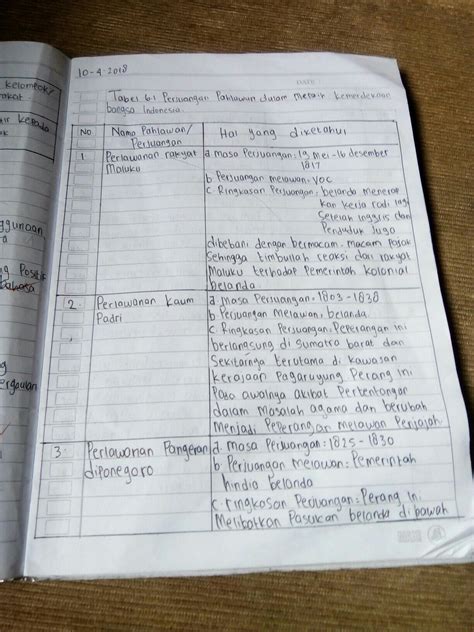 10-4-2018
DATE:
Tabel 6.1 Perjuangan Pahlawan dalam meraih kemerdekaan
bangsa Indonesia.
NO
Nama Pahlawan/
Perjuangan
Hal yang diketahui
1
Perlawanan rakyat
Maluku
a. Masa Perjuangan: 15 mei-16 desember
1817
b. Perjuangan melawan: VOC
c. Ringkasan Perjuangan: belanda menerap
kan kerja radi lagi
Setelah Inggris dan
Penduduk Juga
dibebani dengan bermacam, macam pajak
Sehingga timbullah reaksi dari rakyat
Maluku terhadap Pemerintah kolonial
belanda
2
Perlawanan Kaum
Padri
a. Masa Perjuangan: 1803-1838
b. Perjuangan Melawan: belanda.
c. Ringkasan Perjuangan: Peperangan ini
berlangsung di Sumatra barat dan
Sekitarnya terutama di kawasan
kerajaan Pagaruyung Perang ini
Pada awalnya akibat Pertentangan
dalam Masalah agama dan berubah
Menjadi Peperangan melawan Penjajah
3
Perlawanan Pangeran
diponegoro
a. Masa Perjuangan: 1825-1830
b. Perjuangan melawan: Pemerintah
hindia belanda
c. Ringkasan Perjuangan: Perang ini
Melibatkan Pasukan belanda dibawah